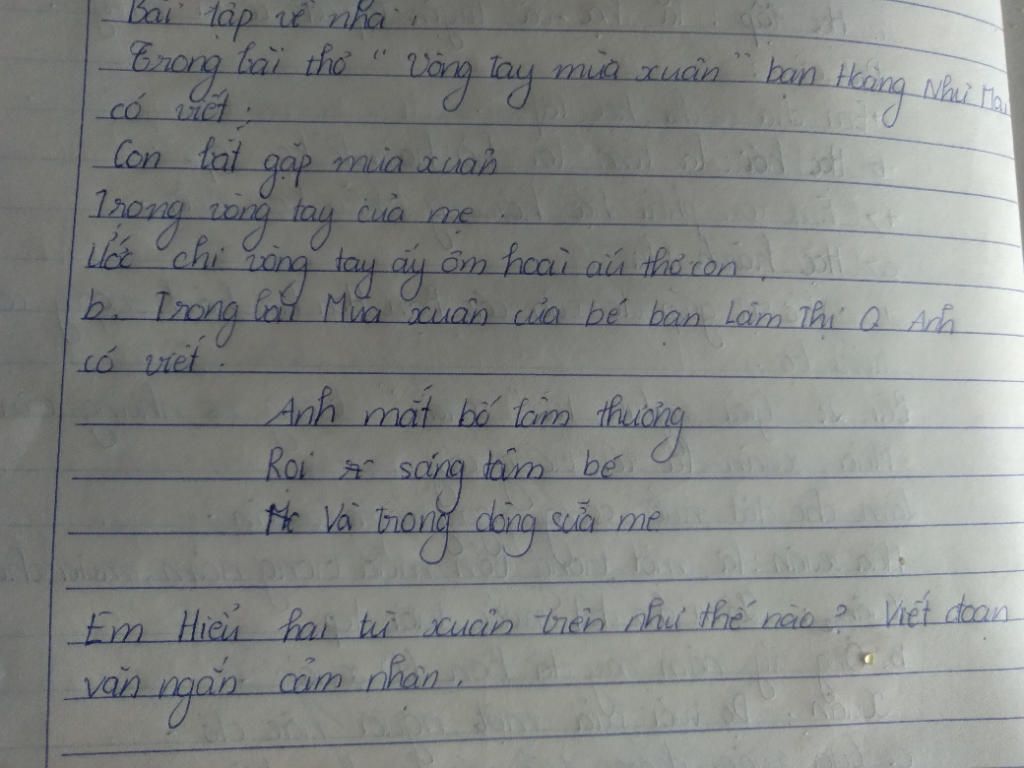 Bài tập về nhà.
Trong bài thơ "Vòng tay mùa xuân" bạn Hoàng Như Mai
có viết:
Con bắt gặp mùa xuân
Trong vòng tay của mẹ.
Ước chi vòng tay ấy ôm hoài ấu thơ con.
b. Trong bài Mùa xuân của bé bạn Lâm Thị Q Anh
có viết.
Anh mắt bố tâm thương
Roi sáng tâm bé
Và trong dòng sữa mẹ
Em Hiểu hai từ xuân trên như thế nào? Viết đoạn
văn ngắn cảm nhận.